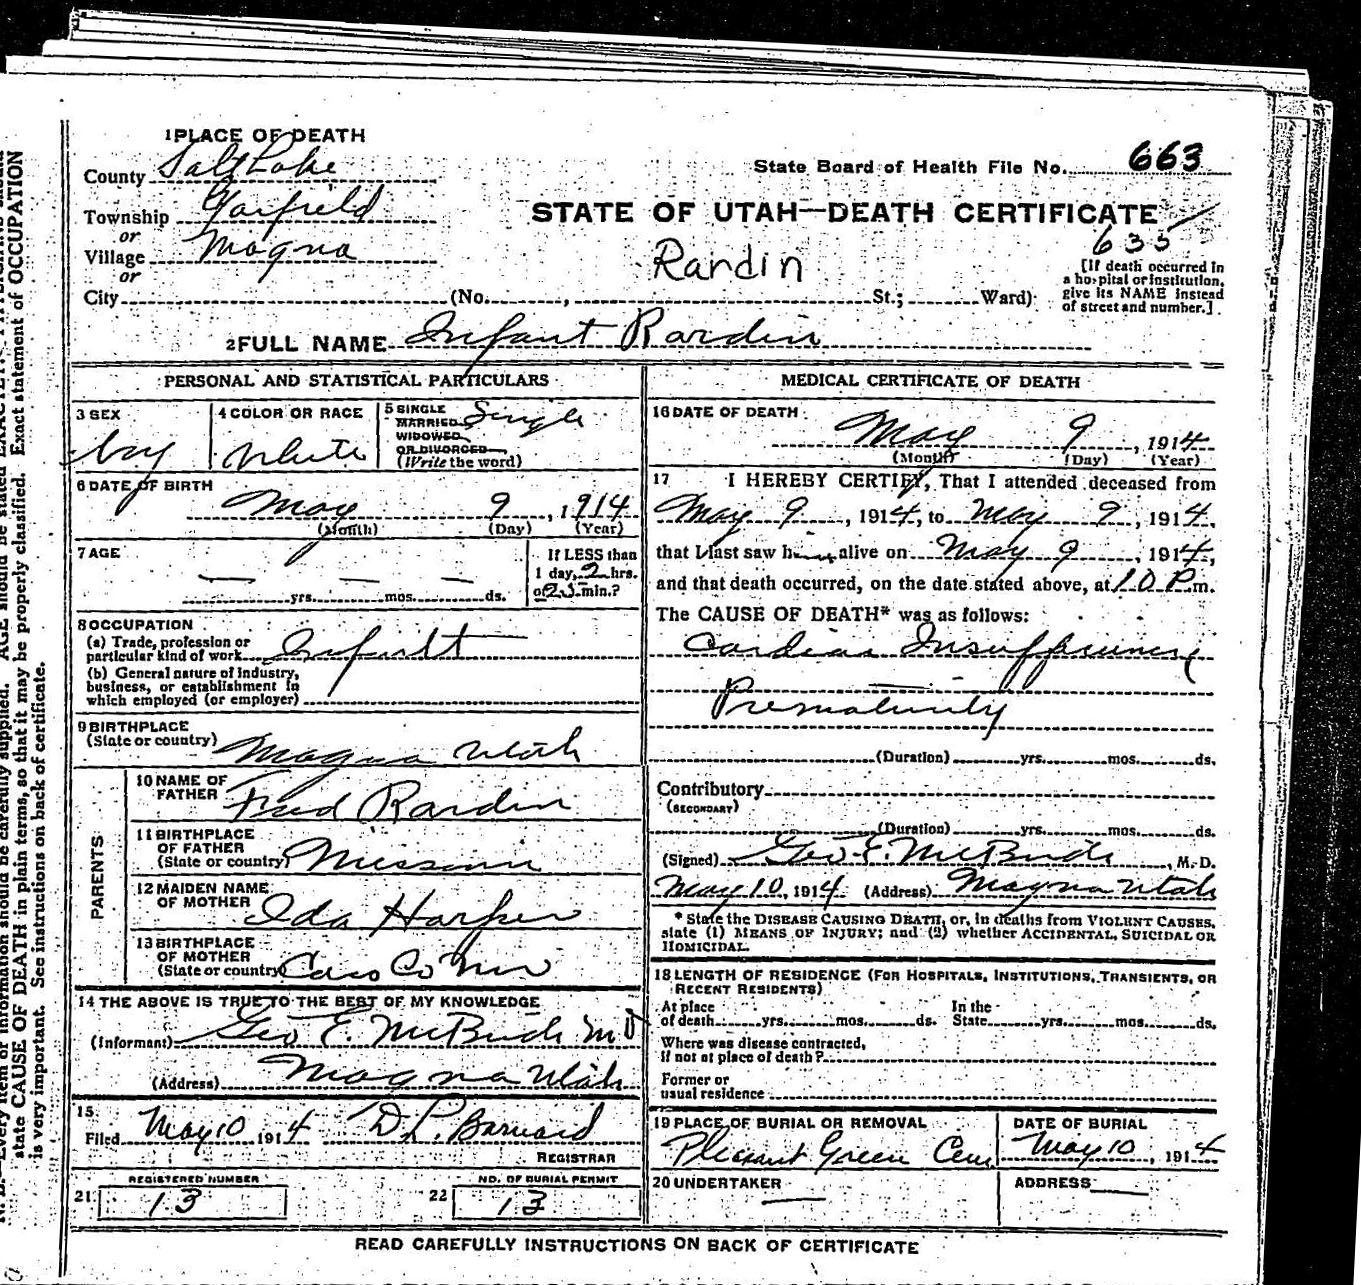 1 PLACE OF DEATH
County Salt Lake
State Board of Health File No. 663
Township Garfield
or
STATE OF UTAH—DEATH CERTIFICATE
635
Village Magna
or
Rardin
[If death occurred in
a hospital or institution,
give its NAME instead
of street and number.]
City (No. , St.; Ward)
2 FULL NAME Infant Rardin
PERSONAL AND STATISTICAL PARTICULARS
3 SEX
boy
4 COLOR OR RACE
White
5 SINGLE
MARRIED
WIDOWED
OR DIVORCED
(Write the word)
Single
6 DATE OF BIRTH
May 9, 1914
(Month) (Day) (Year)
7 AGE
— — —
yrs. mos. ds.
If LESS than
1 day, 2 hrs.
or min.?
8 OCCUPATION
(a) Trade, profession or
particular kind of work
(b) General nature of industry,
business, or establishment in
which employed (or employer)
9 BIRTHPLACE
(State or country) Magna Utah
PARENTS
10 NAME OF
FATHER Fred Rardin
11 BIRTHPLACE
OF FATHER
(State or country) Missouri
12 MAIDEN NAME
OF MOTHER Ida Harper
13 BIRTHPLACE
OF MOTHER
(State or country) Co
14 THE ABOVE IS TRUE TO THE BEST OF MY KNOWLEDGE
(Informant) Geo E. McBride M D
(Address) Magna Utah
15
Filed May 10 1914 D. L. Barnard
REGISTRAR
REGISTERED NUMBER
21 13
NO. OF BURIAL PERMIT
22 13
MEDICAL CERTIFICATE OF DEATH
16 DATE OF DEATH
May 9, 1914
(Month) (Day) (Year)
17 I HEREBY CERTIFY, That I attended deceased from
May 9, 1914, to May 9, 1914,
that I last saw him alive on May 9, 1914,
and that death occurred, on the date stated above, at 10 P.m.
The CAUSE OF DEATH* was as follows:
Cardiac Insufficiency
Prematurity
(Duration) yrs. mos. ds.
Contributory
(SECONDARY)
(Duration) yrs. mos. ds.
(Signed) Geo E. McBride, M. D.
May 10, 1914 (Address) Magna Utah
* State the DISEASE CAUSING DEATH, or, in deaths from VIOLENT CAUSES,
state (1) MEANS OF INJURY; and (2) whether ACCIDENTAL, SUICIDAL OR
HOMICIDAL.
18 LENGTH OF RESIDENCE (FOR HOSPITALS, INSTITUTIONS, TRANSIENTS, OR
RECENT RESIDENTS)
At place In the
of death yrs. mos. ds. State yrs. mos. ds.
Where was disease contracted,
if not at place of death?
Former or
usual residence
19 PLACE OF BURIAL OR REMOVAL
Pleasant Green Cem
DATE OF BURIAL
May 10, 1914
20 UNDERTAKER —
ADDRESS —
READ CAREFULLY INSTRUCTIONS ON BACK OF CERTIFICATE
state CAUSE OF DEATH in plain terms, so that it may be properly classified. Exact statement of OCCUPATION
is very important. See instructions on back of certificate.